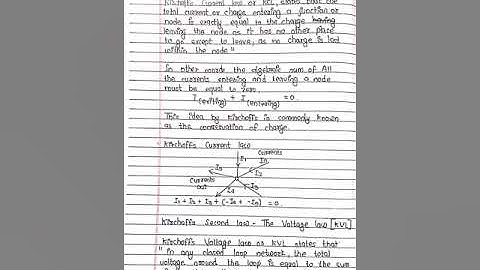 Kirchoffs Current law or KCL, states that the
total current or charge entering a junction or
node is exactly equal to the charge having
leaving the node as it has no other place
to go except to leave, as no charge is lost
within the node"
In other words the algebraic sum of All
the currents entering and leaving a node
must be equal to zero.
I(exiting) + I(entering) = 0
This idea by Kirchoffs is commonly known
as the conservation of charge.
Kirchoffs Current law
Currents
In
I1
I2
I3
I4
I5
Currents
out
I1 + I2 + I3 + (-I4 + -I5) = 0
Kirchoffs Second law - The Voltage law [KVL]
Kirchoffs Voltage law or KVL states that
" in any closed loop network, the total
voltage around the loop is equal to the sum